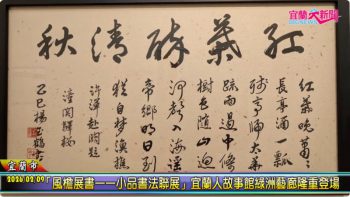 宜蘭新聞
紅葉醉清秋
紅葉晚蕭蕭
長亭酒一瓢
殘雲歸太華
疏雨過中條
樹色隨關迥
河聲入海遙
帝鄉明日到
猶自夢漁樵
許渾赴闕題
潼關驛樓
乙巳楊玉鶴
宜蘭市
2026 02 09
「風檐展書——小品書法聯展」宜蘭人故事館綠洲藝廊隆重登場